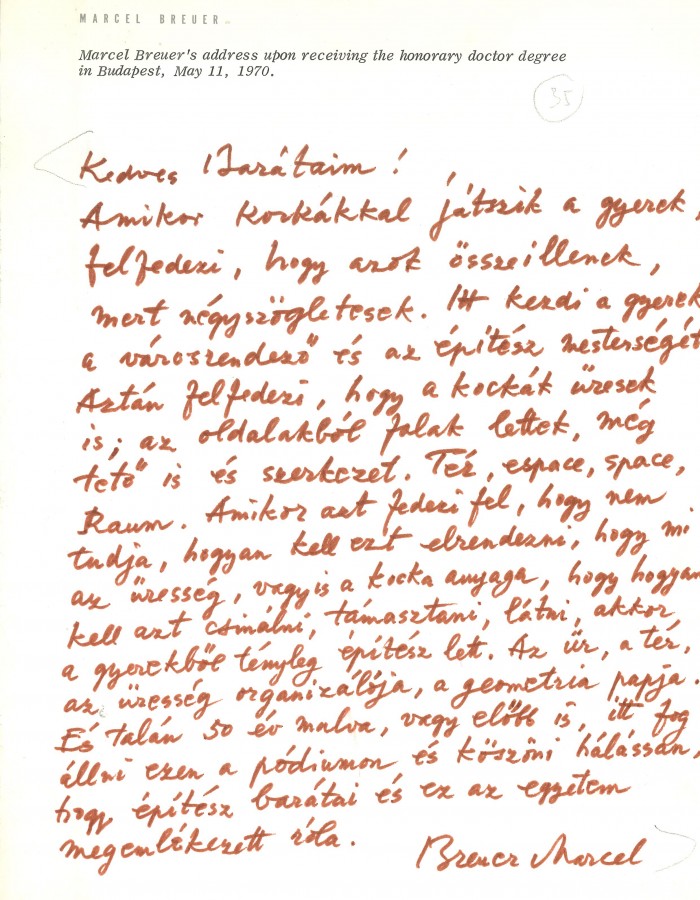 MARCEL BREUER
Marcel Breuer's address upon receiving the honorary doctor degree
in Budapest, May 11, 1970.
35
Kedves Barátaim!
Amikor kockákkal játszik a gyerek,
felfedezi, hogy azok összeillenek,
mert négyszögletesek. Itt kezdi a gyerek
a városrendező és az építész mesterségét
Aztán felfedezi, hogy a kockák üresek
is; az oldalakból falak lettek, még
tető is és szerkezet. Tér, espace, space,
Raum. Amikor azt fedezi fel, hogy nem
tudja, hogyan kell ezt elrendezni, hogy mi
az üresség, vagyis a kocka anyaga, hogy hogyan
kell azt csinálni, támasztani, látni, akkor
a gyerekből tényleg építész lett. Az űr, a tér,
az üresség organizálója, a geometria papja.
És talán 50 év mulva, vagy előbb is, itt fog
állni ezen a pódiumon és köszöni hálássan,
hogy építész barátai és ez az egyetem
megemlékezett róla.
Breuer Marcel